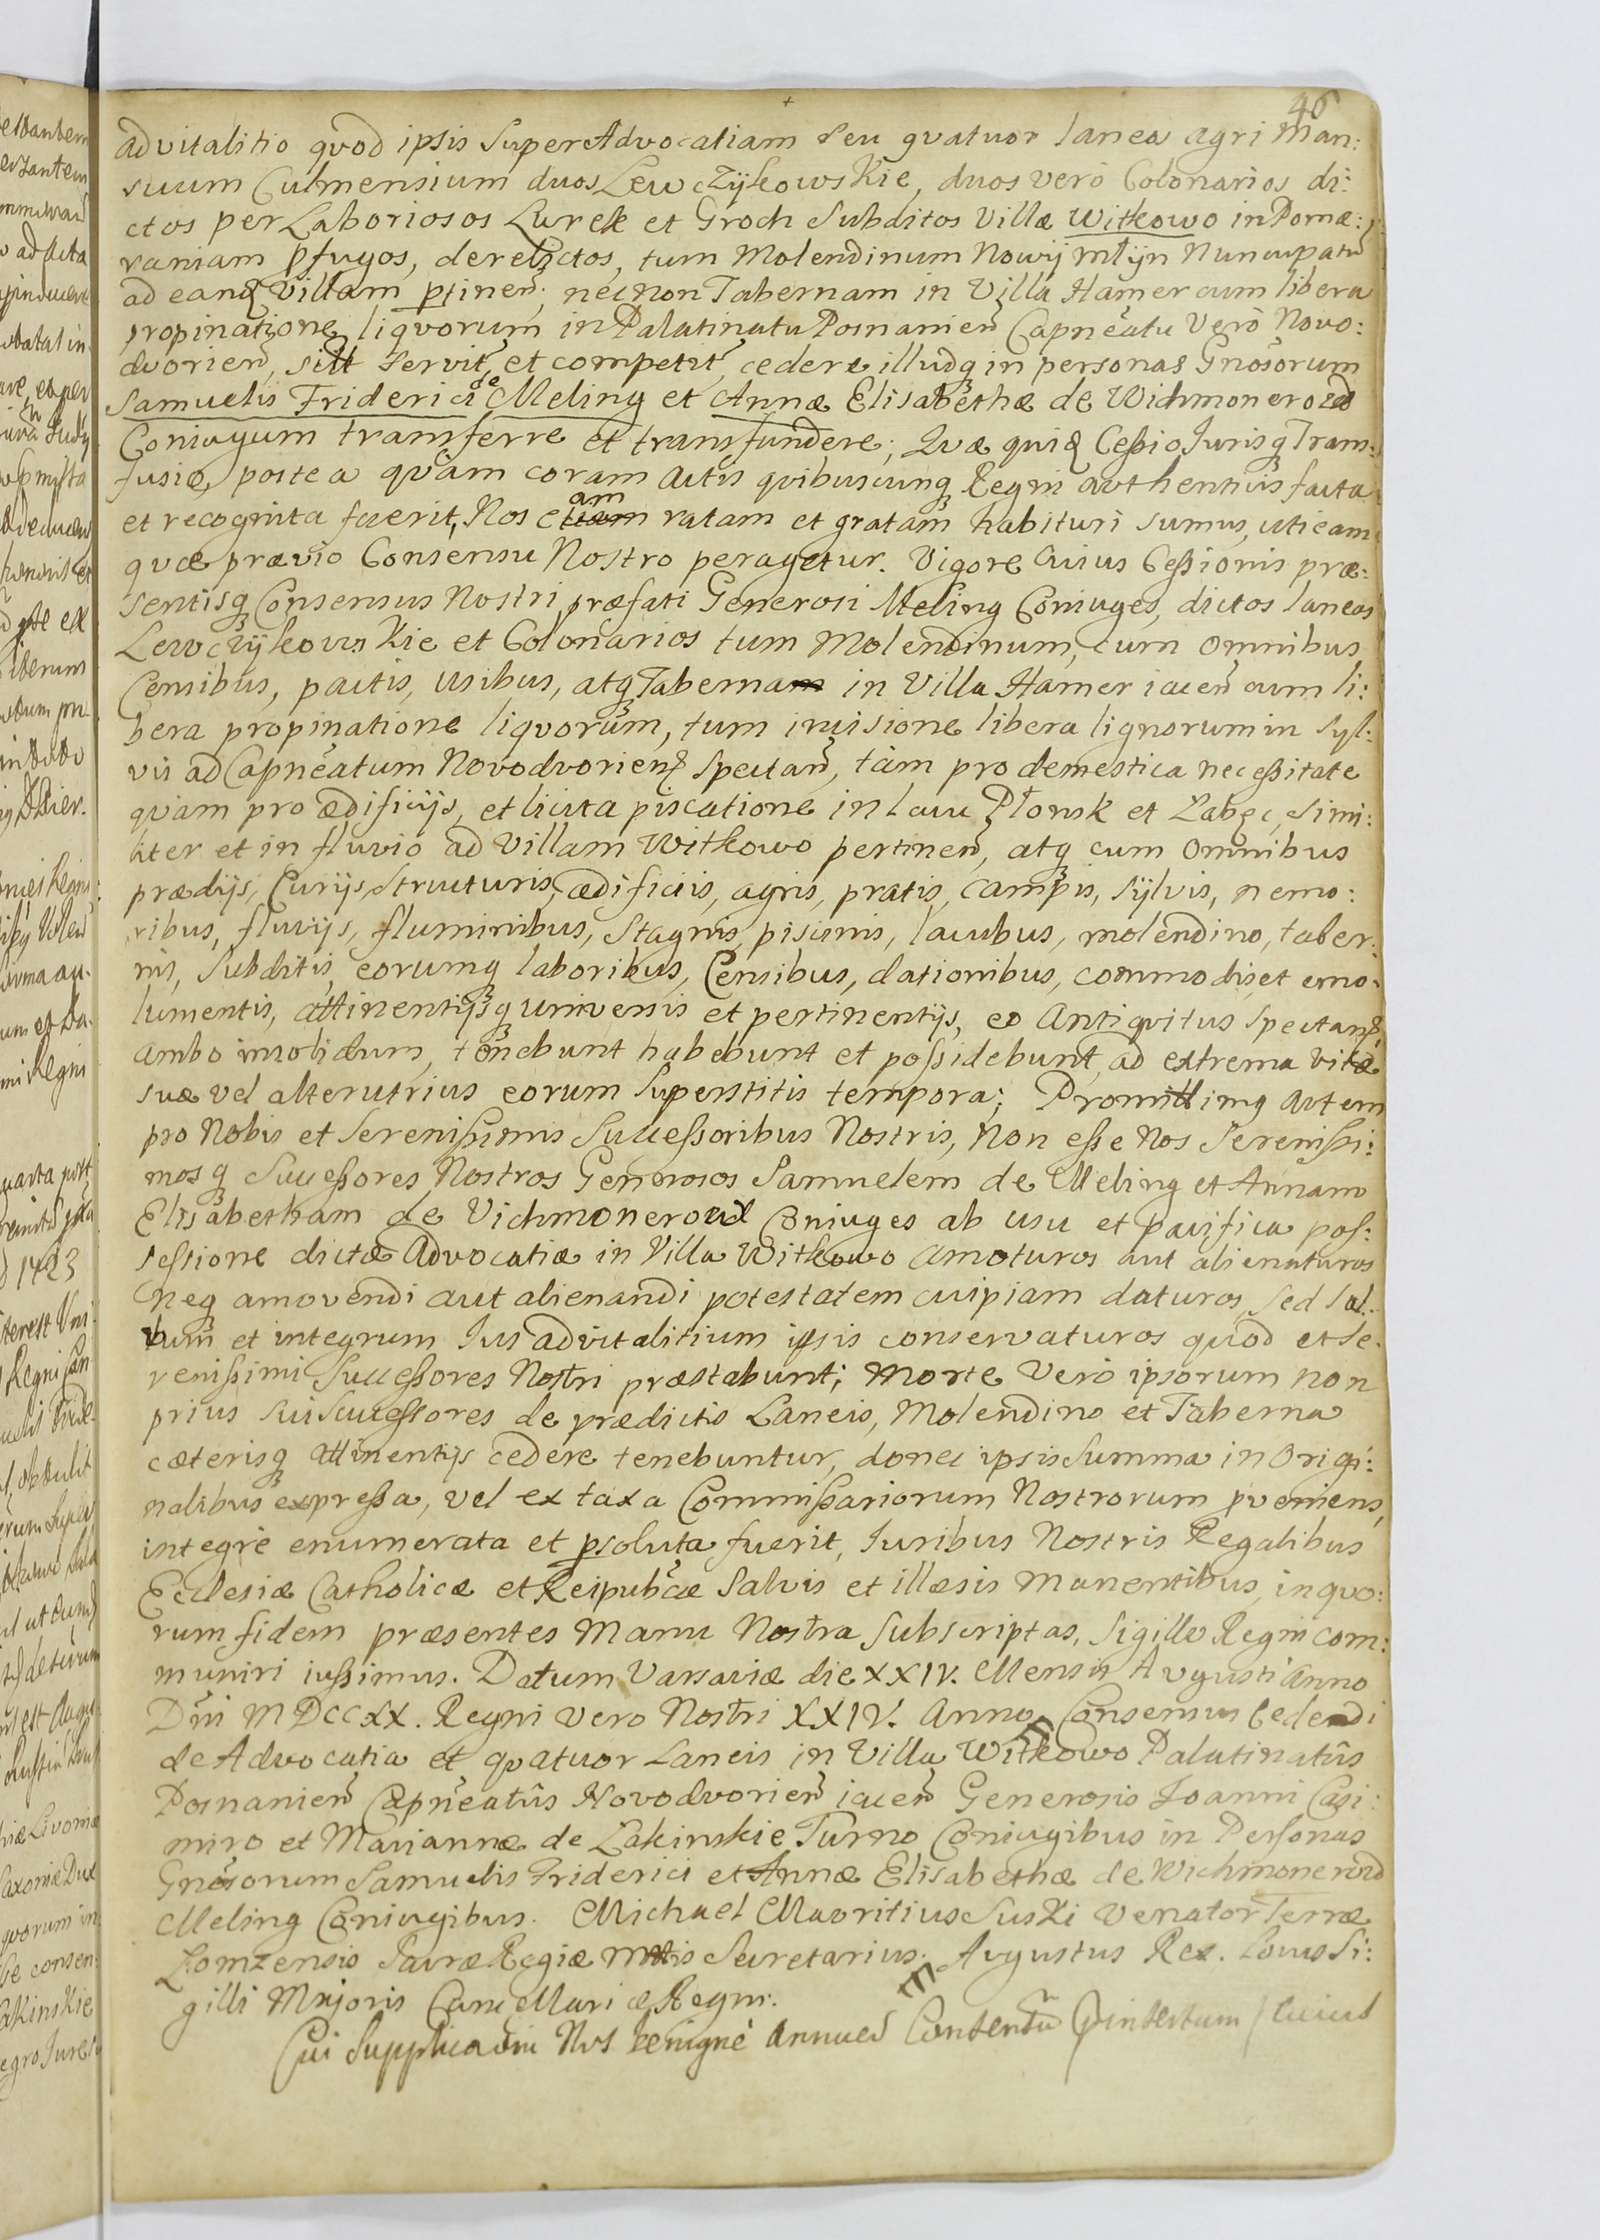 46
advitalitio qvod ipsis super Advocatiam seu qvatuor laneos agri Man:
suum Culmensium duos Lewczÿkowskie, duos verò Colonarios di:
ctos per Laboriosos Lurek et Groch Subditos Villæ Witkowo in Pomæ:
raniam pfugos, derelictos, tum Molendinum Nowÿ młÿn Nuncupatū
ad eandē Villam ptineñ; necnon Tabernam in Villa Hamer cum libera
propinatione liqvorum in Palatinatu Posnanieñ Capneatu verò Novo:
dvorieñ, sitt servit, et competit, cedere illudq in personas Gnosorum
Samuelis Friderici de Meling et Annæ Elisabethæ de Wichmonerowd
Coniugum transferre et transfundere; Qvæ quidē Cessio Iurisq Trans:
fusio, postea qvàm coram Actis qvibuscunq Regni avthenticis facta
et recognita fuerit, Nos eam ratam et gratam habituri sumus, uti eam
qvæ prævio Consensu Nostro peragetur. Vigore cuius Cessionis præ:
sentisq Consensus Nostri, præfati Generosi Meling Coniuges, dictos laneos
Lewczÿkowskie et Colonarios tum Molendinum, cum omnibus
Censibus, pactis, usibus, atq Taberna in Villa Hamer iaceñ cum li:
bera propinatione liqvorum, tum incisione libera lignorum in syl:
vis ad Capneatum Novodvorieñ spectañ, tàm pro demestica necessitate
qvàm pro ædificijs, et licita piscatione in lacu Płonsk et Łabęc, simi:
liter et in fluvio ad Villam Witkowo pertineñ, atq cum omnibus
prædijs, Curijs, structuris, ædificiis, agris, pratis, campis, sÿlvis, nemo:
ribus, fluvijs, fluminibus, stagnis, piscinis, lacubus, molendino, taber:
nis, subditis, eorumq laboribus, Censibus, dationibus, commodis et emo:
lumentis, attinentijsq universis et pertinentijs, eo antiqvitus spectañ,
ambo insolidum, tenebunt habebunt et possidebunt, ad extrema vitæ
suæ vel alterutrius eorum superstitis tempora; Promittimq avtem
pro Nobis et Serenissimis Successoribus Nostris, Non esse Nos Serenissi:
mosq Successores Nostros Generosos Samuelem de Meling et Annam
Elisabetham de Vichmonerowd Coniuges ab usu et pacifica pos:
sessione dictæ Advocatiæ in Villa Witkowo amoturos aut alienaturos
Neq amovendi aut alienandi potestatem cuipiam daturos, sed sal:
vum et integrum Ius advitalitium ipsis conservaturos quod et Se:
renissimi Successores Nostri præstabunt; Morte verò ipsorum non
prius sui Successores de prædictis Laneis, Molendino et Taberna
cæterisq attinentijs cedere tenebuntur, donec ipsis summa in Origi:
nalibus expressa, vel ex taxa Commissariorum Nostrorum pveniens,
integrè enumerata et psoluta fuerit, Iuribus Nostris Regalibus
Ecclesiæ Catholicæ et Reipubcæ salvis et illæsis manentibus, in qvo:
rum fidem præsentes Manu Nostra subscriptas, sigillo Regni com:
muniri iussimus. Datum Varsaviæ die XXIV. Mensis Avgusti Anno
Dñi MDCCXX. Regni vero Nostri XXIV. Anno. Consensus Cedendi
de Advocatia et qvatuor Laneis in Villa Witkowo Palatinatûs
Posnanieñ Capneatûs Novodvorieñ iaceñ Generosis Ioanni Casi:
miro et Mariannæ de Łakinskie Turno Coniugibus in Personas
Gnosorum Samuelis Friderici et Annæ Elisabethæ de Wichmonerowd
Meling Coniugibus. Michael Mavritius Suski Venator Terræ
Łomzensis Sacræ Regiæ Mttis Secretarius. Avgustus Rex. Locus Si:
gilli Majoris Cancellariæ Regni.
Cui Supplicaoni Nos benignè annueñ Contentū insertum / Cuius